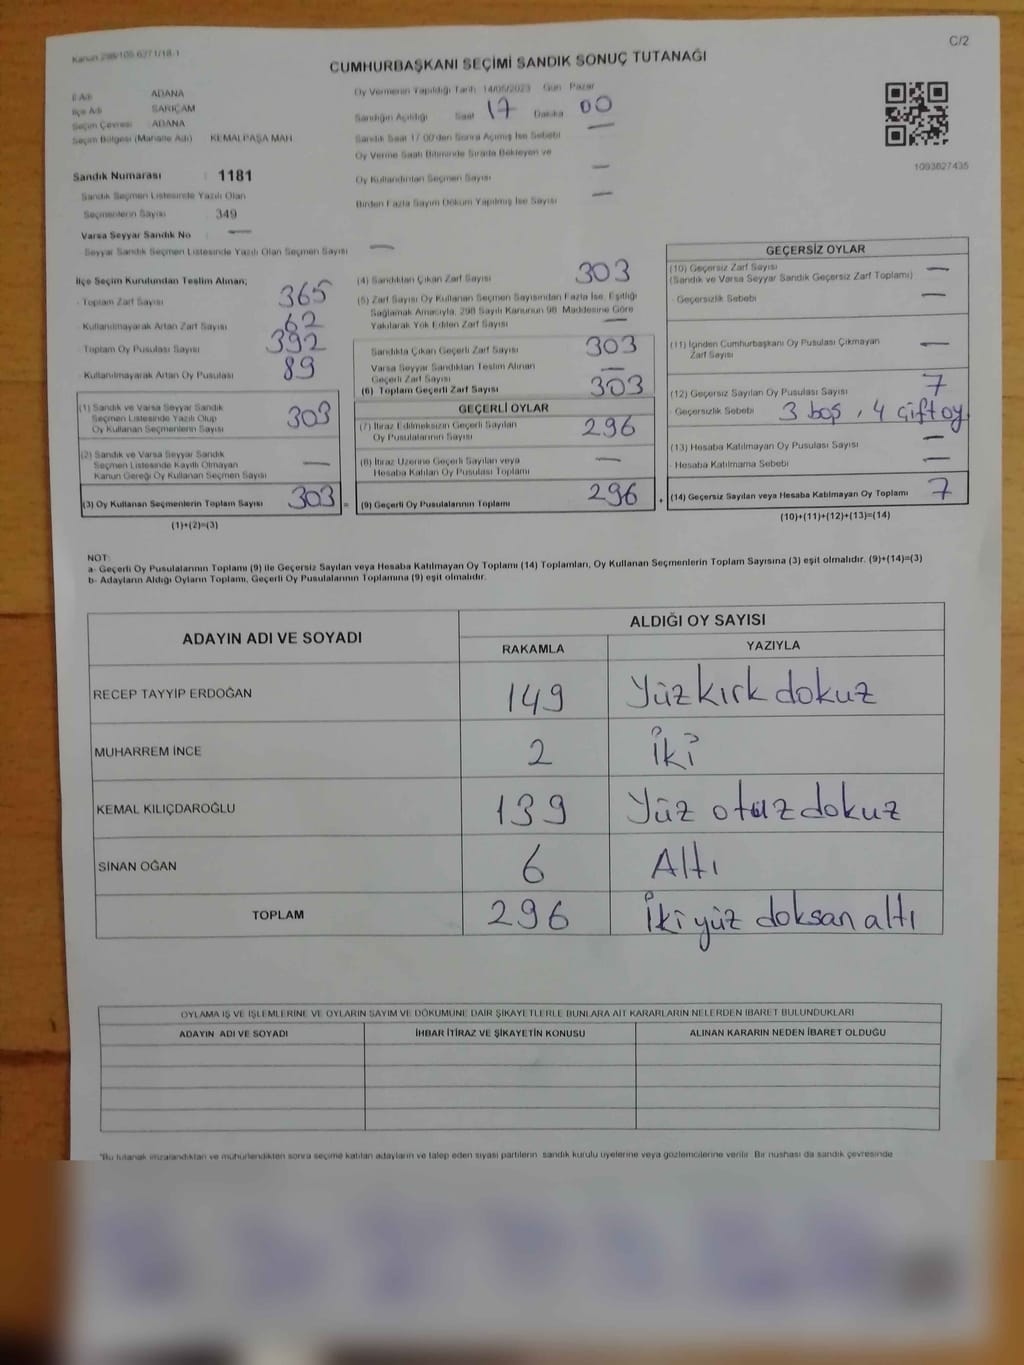 Kanun 298/105 6271/18-1
C/2
CUMHURBAŞKANI SEÇİMİ SANDIK SONUÇ TUTANAĞI
İl Adı ADANA
İlçe Adı SARIÇAM
Seçim Çevresi ADANA
Seçim Bölgesi (Mahalle Adı) KEMALPAŞA MAH
Sandık Numarası : 1181
Sandık Seçmen Listesinde Yazılı Olan
Seçmenlerin Sayısı : 349
Varsa Seyyar Sandık No : —
Seyyar Sandık Seçmen Listesinde Yazılı Olan Seçmen Sayısı —
Oy Vermenin Yapıldığı Tarih 14/05/2023 Gün Pazar
Sandığın Açıldığı Saat 17 Dakika 00
Sandık Saat 17 00'den Sonra Açılmış İse Sebebi —
Oy Verme Saati Bitiminde Sırada Bekleyen ve
Oy Kullandırılan Seçmen Sayısı —
Birden Fazla Sayım Döküm Yapılmış İse Sayısı —
1093627435
İlçe Seçim Kurulundan Teslim Alınan;
- Toplam Zarf Sayısı 365
- Kullanılmayarak Artan Zarf Sayısı 62
- Toplam Oy Pusulası Sayısı 392
- Kullanılmayarak Artan Oy Pusulası 89
(1) Sandık ve Varsa Seyyar Sandık
Seçmen Listesinde Yazılı Olup
Oy Kullanan Seçmenlerin Sayısı 303
(2) Sandık ve Varsa Seyyar Sandık
Seçmen Listesinde Kayıtlı Olmayan
Kanun Gereği Oy Kullanan Seçmen Sayısı —
(3) Oy Kullanan Seçmenlerin Toplam Sayısı 303 =
(1)+(2)=(3)
(4) Sandıktan Çıkan Zarf Sayısı 303
(5) Zarf Sayısı Oy Kullanan Seçmen Sayısından Fazla İse, Eşitliği
Sağlamak Amacıyla, 298 Sayılı Kanunun 98. Maddesine Göre
Yakılarak Yok Edilen Zarf Sayısı —
Sandıkta Çıkan Geçerli Zarf Sayısı 303
Varsa Seyyar Sandıktan Teslim Alınan
Geçerli Zarf Sayısı —
(6) Toplam Geçerli Zarf Sayısı 303
GEÇERLİ OYLAR
(7) İtiraz Edilmeksizin Geçerli Sayılan
Oy Pusulalarının Sayısı 296
(8) İtiraz Üzerine Geçerli Sayılan veya
Hesaba Katılan Oy Pusulası Toplamı —
(9) Geçerli Oy Pusulalarının Toplamı 296 +
GEÇERSİZ OYLAR
(10) Geçersiz Zarf Sayısı —
(Sandık ve Varsa Seyyar Sandık Geçersiz Zarf Toplamı)
- Geçersizlik Sebebi —
(11) İçinden Cumhurbaşkanı Oy Pusulası Çıkmayan
Zarf Sayısı —
(12) Geçersiz Sayılan Oy Pusulası Sayısı 7
- Geçersizlik Sebebi 3 boş, 4 çift oy
(13) Hesaba Katılmayan Oy Pusulası Sayısı —
- Hesaba Katılmama Sebebi —
(14) Geçersiz Sayılan veya Hesaba Katılmayan Oy Toplamı 7
(10)+(11)+(12)+(13)=(14)
NOT:
a- Geçerli Oy Pusulalarının Toplamı (9) ile Geçersiz Sayılan veya Hesaba Katılmayan Oy Toplamı (14) Toplamları, Oy Kullanan Seçmenlerin Toplam Sayısına (3) eşit olmalıdır. (9)+(14)=(3)
b- Adayların Aldığı Oyların Toplamı, Geçerli Oy Pusulalarının Toplamına (9) eşit olmalıdır.
ADAYIN ADI VE SOYADI ALDIĞI OY SAYISI
RAKAMLA YAZIYLA
RECEP TAYYİP ERDOĞAN 149 Yüzkırk dokuz
MUHARREM İNCE 2 İki
KEMAL KILIÇDAROĞLU 139 Yüz otuz dokuz
SİNAN OĞAN 6 Altı
TOPLAM 296 İki yüz doksan altı
OYLAMA İŞ VE İŞLEMLERİNE VE OYLARIN SAYIM VE DÖKÜMÜNE DAİR ŞİKAYETLERLE BUNLARA AİT KARARLARIN NELERDEN İBARET BULUNDUKLARI
ADAYIN ADI VE SOYADI İHBAR İTİRAZ VE ŞİKAYETİN KONUSU ALINAN KARARIN NEDEN İBARET OLDUĞU
*Bu tutanak imzalandıktan ve mühürlendikten sonra seçime katılan adayların ve talep eden siyasi partilerin sandık kurulu üyelerine veya gözlemcilerine verilir. Bir nüshası da sandık çevresinde